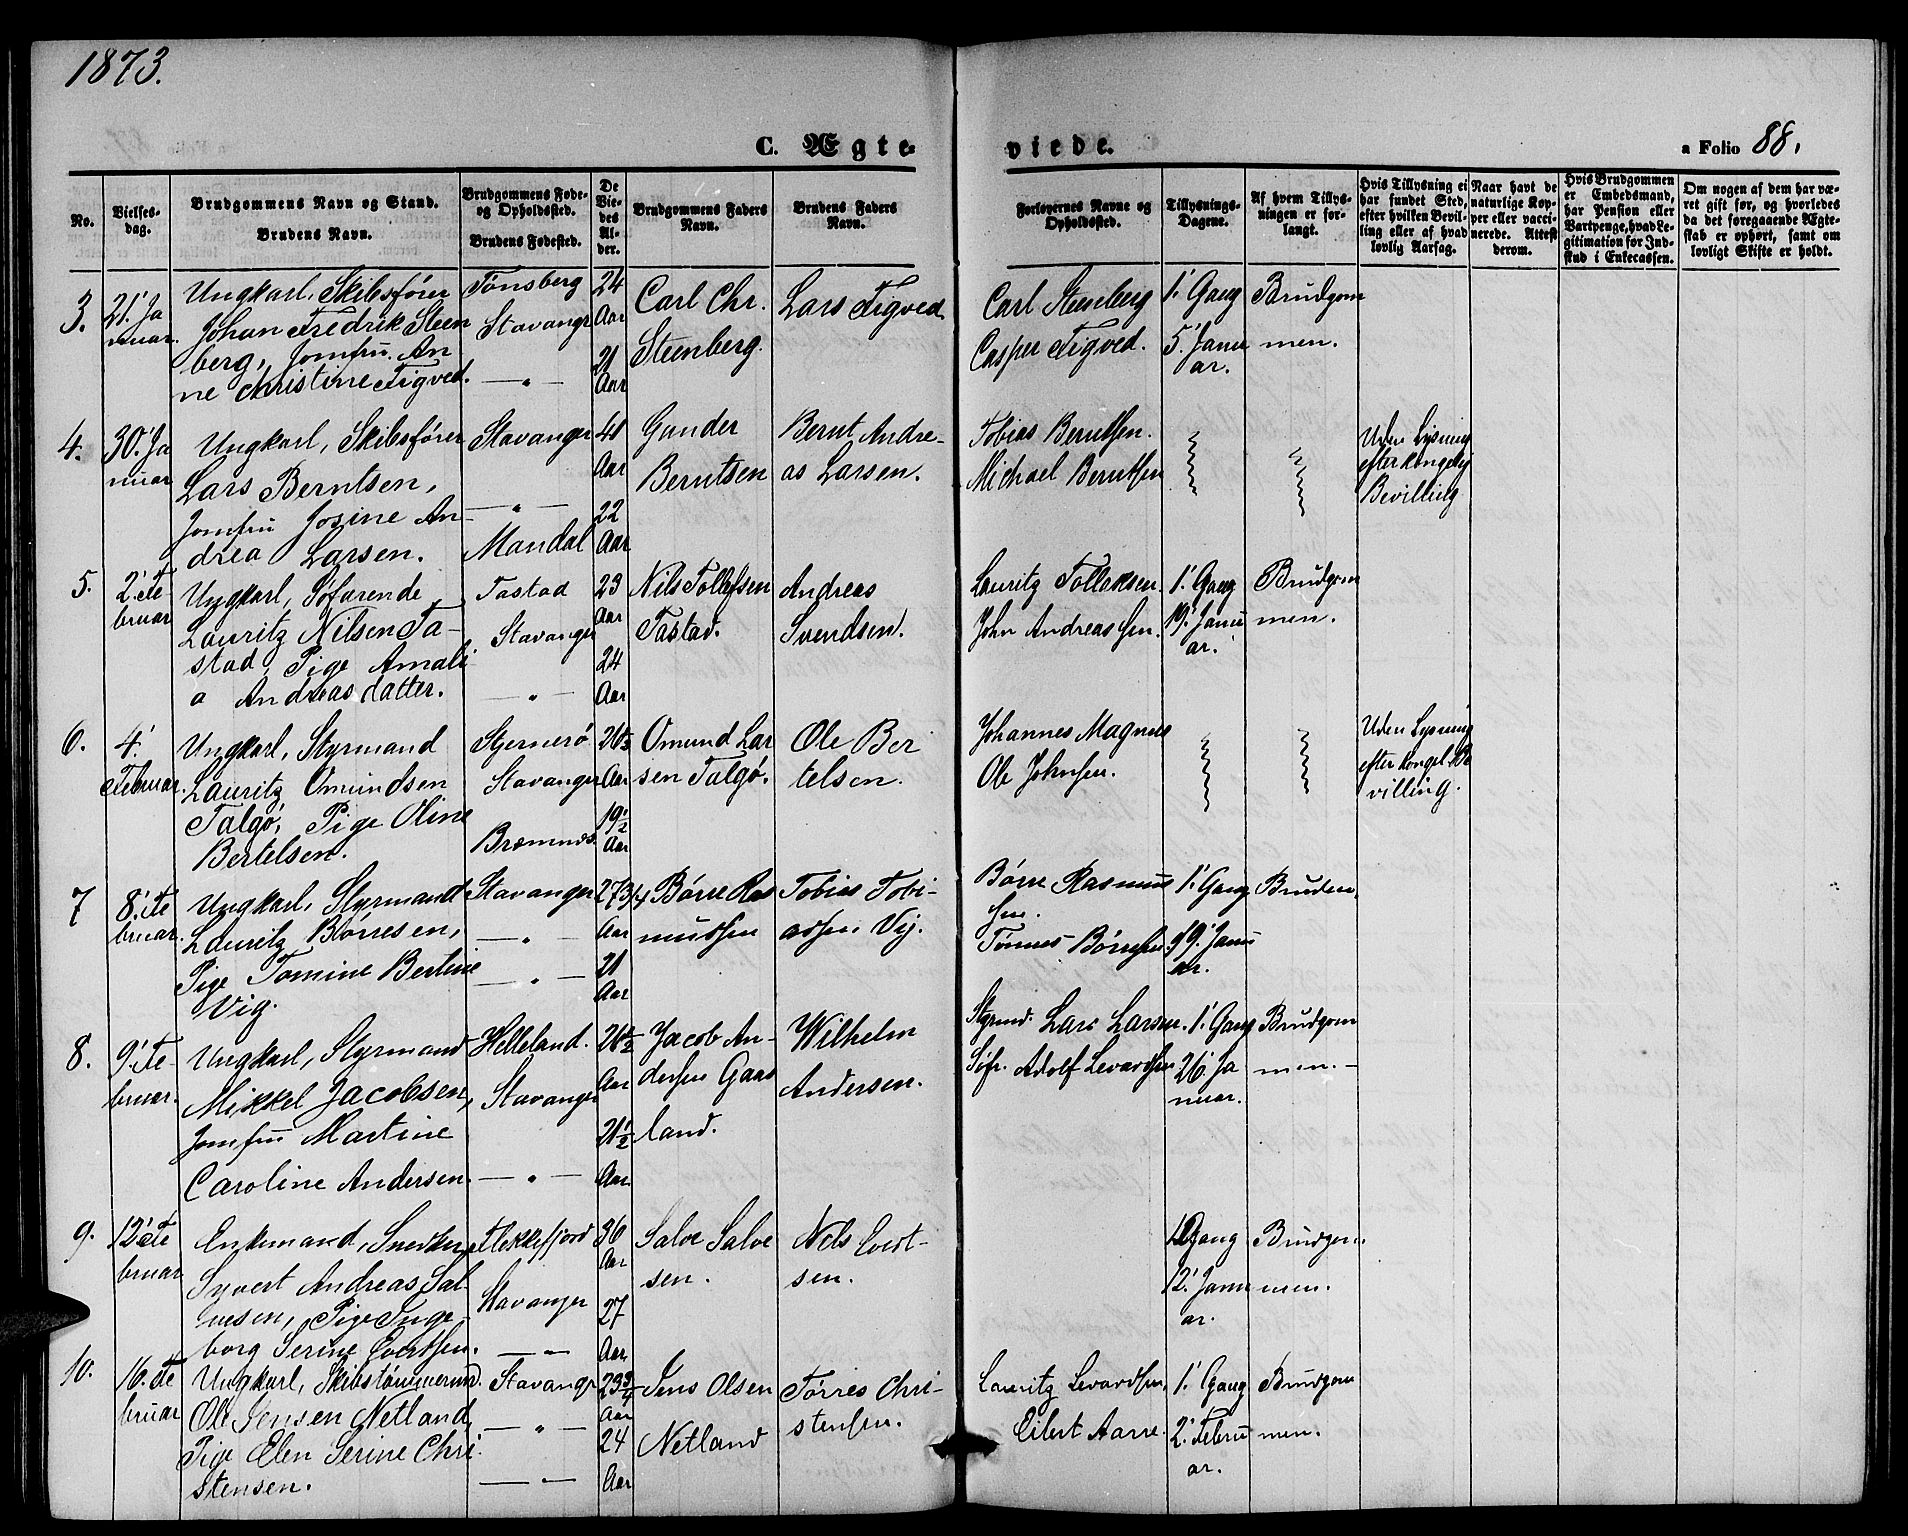 1873.
C. Ægte-
viede.
a Folio 88.
No.
Vielses-
dag.
Brudgommens Navn og Stand.
Brudens Navn.
Brudgommens Føde-
og Opholdssted.
Brudens Fødested.
De
Vie-
des
Al-
der.
Brudgommens Faders
Navn.
Brudens Faders
Navn.
Forlovernes Navne og
Opholdssted.
Tillysnings-
Dagene.
Af hvem Tillys-
ningen er for-
langt.
Hvis Tillysning ei
har fundet Sted,
efter hvilken Bevil-
ling eller af hvad
lovlig Aarsag.
Naar havt de
naturlige Kop-
per eller vacci-
nerede. Attest
derom.
Hvis Brudgommen
er Embedsmand,
har Pension eller
Vartpenge, hvad Le-
gitimation for Ind-
skud i Enkecassen.
Om nogen af dem har væ-
ret gift før, og hvorledes
da det foregaaende Ægte-
skab er ophørt, samt om
lovligt Skifte er holdt.
3.
21' Ja
nuar.
Ungkarl, Skibsfører
Johan Fredrik Steen
berg, Jomfru An
ne Christine Tigved.
Tønsberg
Stavanger
— " —
24
Aar
21
Aar
Carl Chr.
Steenberg.
Lars Tigved
Carl Steenberg
Casper Tigved.
1' Gang
5' Janu
ar.
Brudgom
men.
4.
30' Ja
nuar
Ungkarl, Skibsfører
Lars Berntsen,
Jomfru Josine An-
drea Larsen.
Stavanger
— " —
Mandal
Aar
22
Aar
Gunder
Berntsen
Bernt Andre-
as Larsen.
Tobias Berntsen.
Michael Berntsen
Uden Lysning
efter kongelig
Bevilling
5.
2' Fe
bruar
Ungkarl, Søfarende
Lauritz Nilsen Ta-
stad, Pige Amali
a Andreasdatter.
Tastad
Stavanger
— " —
23
Aar
24
Aar
Nils Tollefsen
Tastad.
Andreas
Svendsen.
Lauritz Tollaksen.
John Andreassen.
1' Gang
19' Janu
ar.
Brudgom
men.
6.
4'
Februar.
Ungkarl, Styrmand
Lauritz Omundsen
Talgø, Pige Oline
Bertelsen.
Stjernerø
Stavanger
Bremnes
26½
Aar
19½
Aar
Omund Lar
sen Talgø.
Ole Ber
telsen.
Johannes Magnus
Ole Johnsen.
Uden Lysning
efter kongel. Be
villing.
7
8' Fe
bruar.
Ungkarl, Styrmand
Lauritz Børresen,
Pige Tomine Bertine
Vig.
Stavanger
— " —
— " —
27 3/4
Aar
21
Aar
Børre Ras
mussen
Tobias Tobi-
assen Vig.
Børre Rasmus
sen.
Tønnes Børresen
1' Gang
19' Janu
ar.
Bruden.
8.
9' Fe-
bruar.
Ungkarl, Styrmand
Mikkel Jacobsen,
Jomfru Martine
Caroline Andersen.
Helleland.
Stavanger
— " —
26½
Aar
21½
Aar
Jacob An-
dersen Gaas
land.
Wilhelm
Andersen.
Styrmd. Lars Larsen.
Søfr. Adolf Levardsen
1' Gang
26' Ja
nuar.
Brudgom
men. —
9.
12' Fe
bruar
Enkemand, Snedker
Syvert Andreas Sal-
vesen, Pige Inge-
borg Serine Evertsen.
Flekkefjord
Stavanger
— " —
36
Aar
27
Aar
Salve Salve
sen.
Nils Evert-
sen.
1' Gang
12' Janu
ar.
Brudgom
men.
10.
16. Fe
bruar
Ungkarl, Skibstømmermd.
Ole Jensen Netland,
Pige Elen Serine Chri
stensen.
Stavanger
— " —
— " —
23¾
Aar
24
Aar
Jens Olsen
Netland
Tørres Chri-
stensen.
Lauritz Levardsen,
Eilert Aarre.
1' Gang
2' Febru
ar.
Brudgom
men.